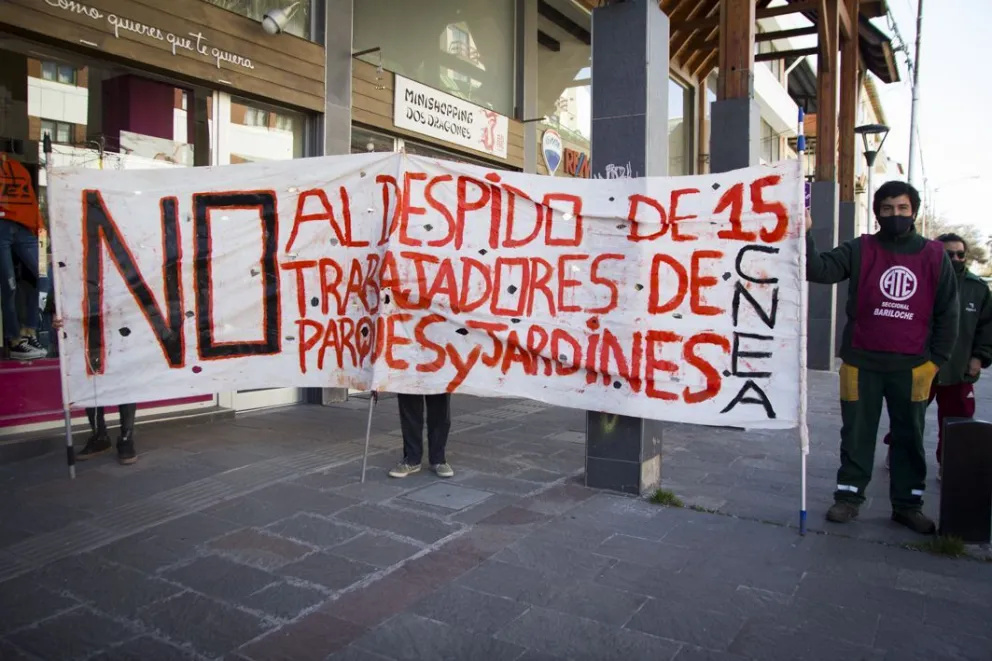 como quieres que te quiera
MINISHOPPING
DOS DRAGONES
RE/MAX
NO AL DESPIDO DE 15
TRABAJADORES DE
PARQUES Y JARDINES
CNEA
ATE
SECCIONAL
BARILOCHE